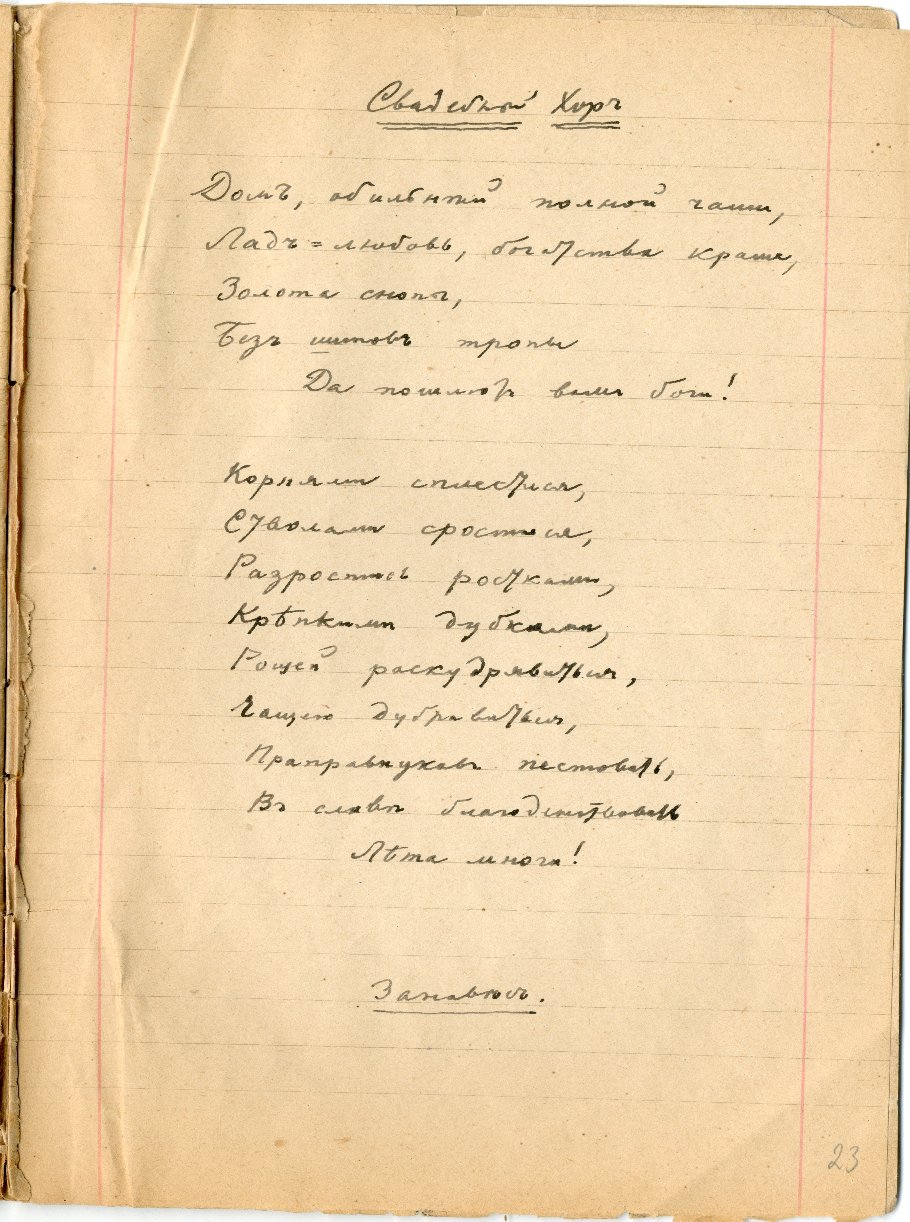 Свадебный Хоръ
Домъ, обильный полной чаши,
Ладъ = любовь, богатства краше,
Золота снопы,
Безъ шиповъ тропы
Да пошлютъ вамъ боги!
Корнями сплестися,
Стволами сростися,
Разростись ростками,
Крѣпкими дубками,
Рощей раскудрявиться,
Чащею дубравиться,
Праправнуковъ пестовать,
Въ славѣ благоденствовать
Лѣта многи!
Занавѣсъ.
23